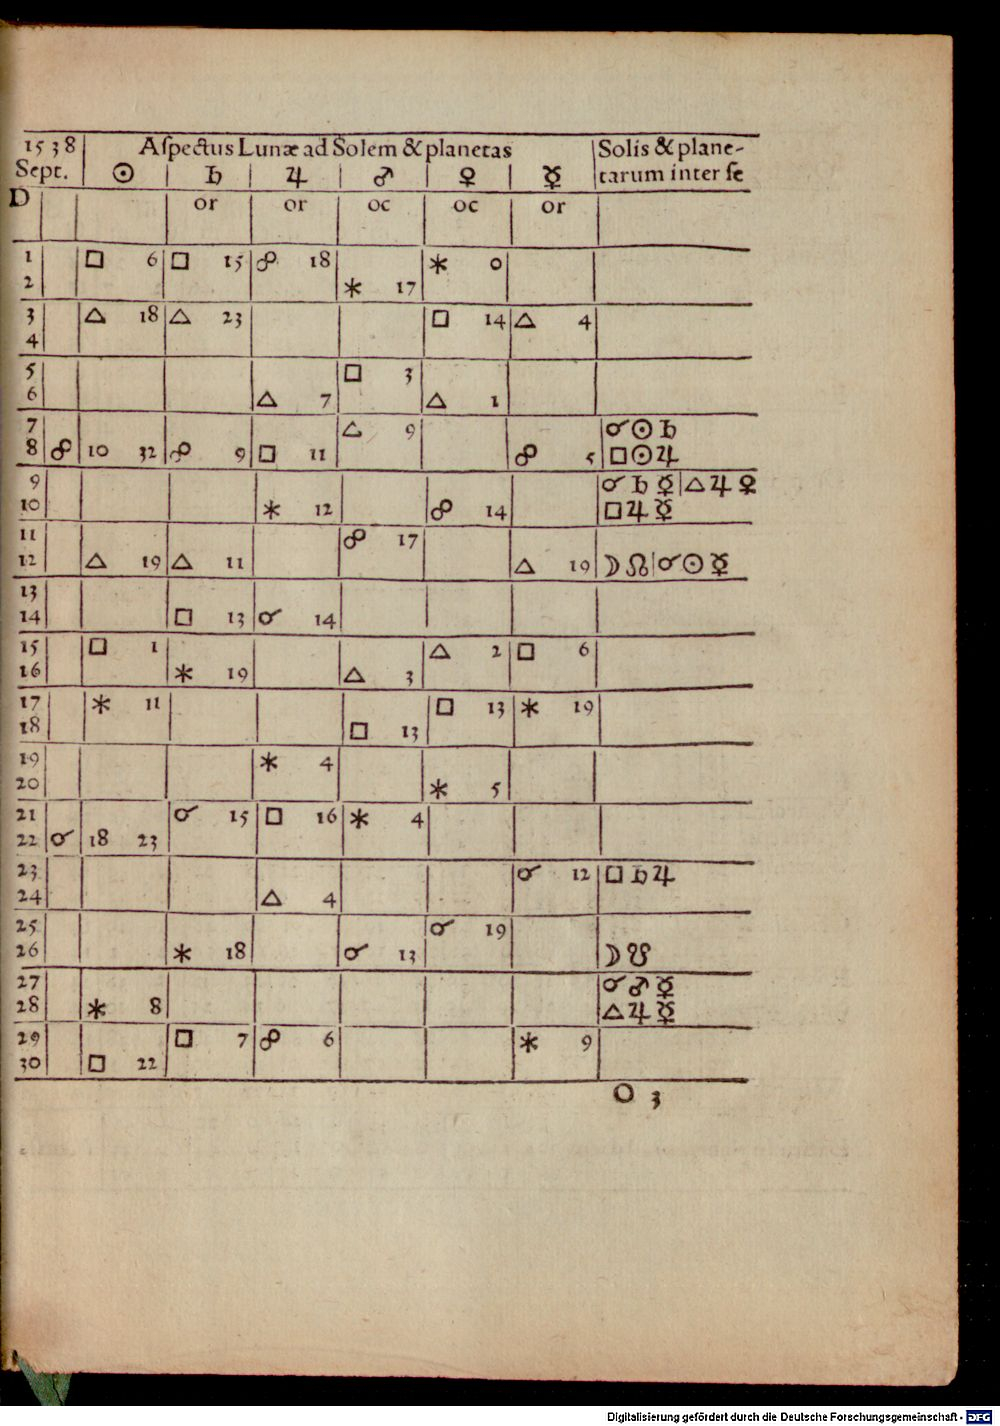 1538 Aſpectus Lunæ ad Solem & planetas Solis & plane-
Sept. ☉ ♄ ♃ ♂ ♀ ☿ tarum inter ſe
D or or oc oc or
1 □ 6 □ 15 ☍ 18 ⚹ 0
2 ⚹ 17
3 △ 18 △ 23 □ 14 △ 4
4
5 □ 3
6 △ 7 △ 1
7 △ 9 ☌ ☉ ♄
8 ☍ 10 32 ☍ 9 □ 11 ☍ 5 □ ☉ ♃
9 ☌ ♄ ☿ | △ ♃ ♀
10 ⚹ 12 ☍ 14 □ ♃ ☿
11 ☍ 17
12 △ 19 △ 11 △ 19 ☽ ☊ | ☌ ☉ ☿
13
14 □ 13 ☌ 14
15 □ 1 △ 2 □ 6
16 ⚹ 19 △ 3
17 ⚹ 11 □ 13 ⚹ 19
18 □ 13
19 ⚹ 4
20 ⚹ 5
21 ☌ 15 □ 16 ⚹ 4
22 ☌ 18 23
23 ☌ 12 □ ♄ ♃
24 △ 4
25 ☌ 19
26 ⚹ 18 ☌ 13 ☽ ☋
27 ☌ ♂ ☿
28 ⚹ 8 △ ♃ ☿
29 □ 7 ☍ 6 ⚹ 9
30 □ 22
O 3
Digitalisierung gefördert durch die Deutsche Forschungsgemeinschaft - DFG